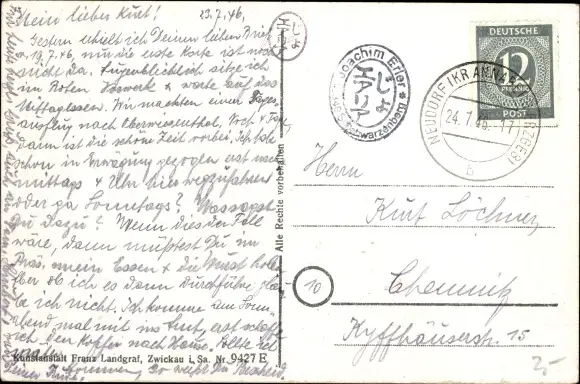 23.7.46.
Mein lieber Kurt!
Gestern erhielt ich Deinen lieben Brief
v. 19.7.46, nur die erste Karte ist noch
nicht da. Augenblicklich sitze ich
im Roten & warte auf das
Mittagessen. Wir machten einen Tages
ausflug nach Oberwiesenthal,
dann ist die schöne Zeit vorbei. Ich habe
schon in Erwägung gezogen erst nach
mittags 4 Uhr hier wegzufahren
oder gar Sonntags? Was sagst
Du dazu? Wenn dies der Fall
wäre, dann müßtest Du im
mein Essen & die Wurst holen
Aber ob ich es dann durchführe glau
be ich nicht. Ich komme am Sonn
abend mal mit erst schaffe
ich den Koffer nach Hause. Sollte ich
kommen, so weißt Du Bescheid.
Kunstanstalt Franz Landgraf, Zwickau i. Sa. Nr. 9427 E
Alle Rechte vorbehalten
Joachim Erler
Schwarzenberg
DEUTSCHE
12
PFENNIG
POST
NEUDORF (KR ANNABERG ERZGEB)
24.7.46.-17
b
Herrn
Kurt Löchner
10
Chemnitz
Kyffhäuserstr. 15